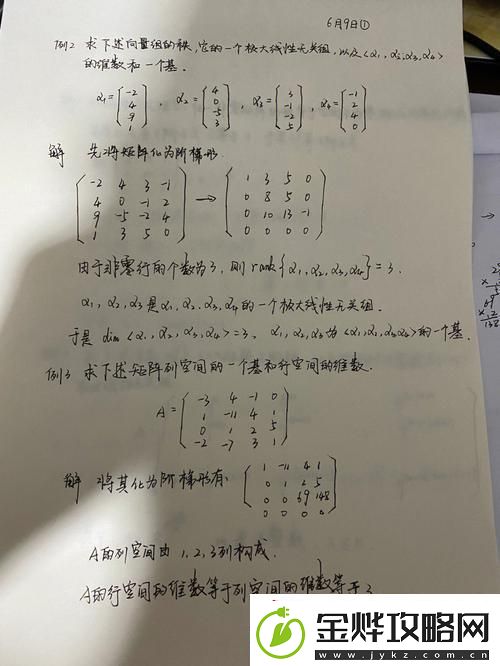 6月9日①
例2 求下述向量组的秩,它的一个极大线性无关组,以及<α1,α2,α3,α4>
的维数和一个基.
α1=(-2 4 9 1), α2=(4 0 -5 3), α3=(3 -1 -2 5), α4=(-1 2 4 0)
解 先将矩阵化为阶梯形.
-2 4 3 -1 → 1 3 5 0
4 0 -1 2 0 8 5 0
9 -5 -2 4 0 10 13 -1
1 3 5 0 0 0 0 0
由于非零行的个数为3,则rank{α1,α2,α3,α4}=3.
α1,α2,α3是α1,α2,α3,α4的一个极大线性无关组.
于是 dim<α1,α2,α3,α4>=3, α1,α2,α3为<α1,α2,α3,α4>的一个基.
例3 求下述矩阵列空间的一个基和行空间的维数.
A=
-3 4 -1 0
1 -11 4 1
0 1 2 5
-2 -7 3 1
解 将其化为阶梯形有
1 -11 4 1
0 1 2 5
0 0 69 148
0 0 0 0
A的列空间由1,2,3列构成.
A的行空间的维数等于列空间的维数等于3
金烨攻略网
www.jykz.com.cn